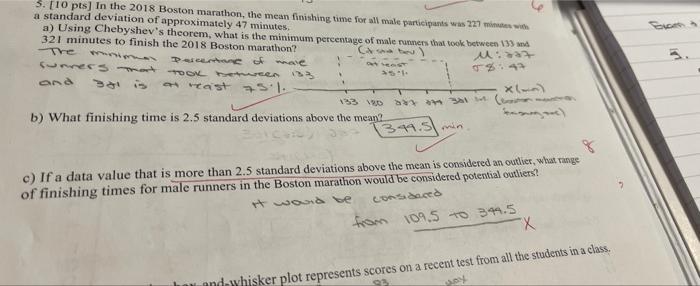 6
5. [10 pts] In the 2018 Boston marathon, the mean finishing time for all male participants was 227 minutes with
a standard deviation of approximately 47 minutes.
a) Using Chebyshev's theorem, what is the minimum percentage of male runners that took between 133 and
321 minutes to finish the 2018 Boston marathon?
The minimum percentage of male
runners that took between 133
and 321 is at least 75%.
at least
75%
μ: 227
σ: 47
x(min)
133 180 227 274 321
b) What finishing time is 2.5 standard deviations above the mean?
344.5 min.
8
c) If a data value that is more than 2.5 standard deviations above the mean is considered an outlier, what range
of finishing times for male runners in the Boston marathon would be considered potential outliers?
It would be considered
from 109.5 to 344.5
x
and-whisker plot represents scores on a recent test from all the students in a class.
93
max
Exam
5.